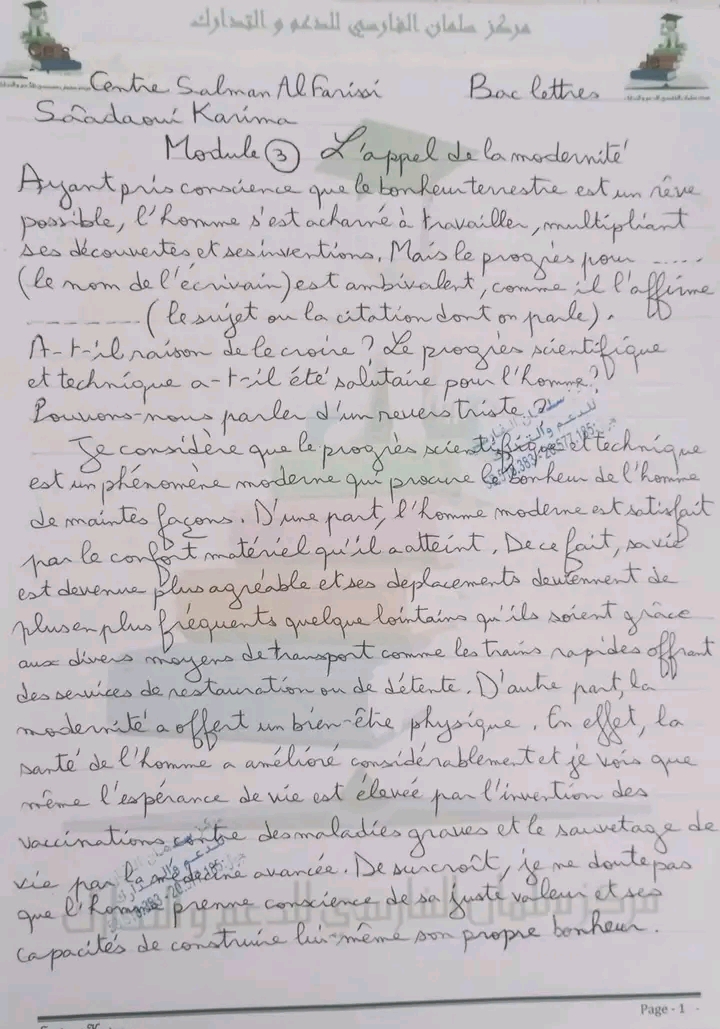 مركز سلمان الفارسي للدعم و التدارك
Centre Salman Al Farissi Bac lettres
Sâadaoui Karima
Module 3 L'appel de la modernité
Ayant pris conscience que le bonheur terrestre est un rêve
possible, l'homme s'est acharné à travailler, multipliant
ses découvertes et ses inventions. Mais le progrès pour .....
(le nom de l'écrivain) est ambivalent, comme il l'affirme
_ _ _ _ _ _ _ (le sujet ou la citation dont on parle).
A-t-il raison de le croire ? Le progrès scientifique
et technique a-t-il été salutaire pour l'homme ?
Pouvons-nous parler d'un revers triste ?
Je considère que le progrès scientifique et technique
est un phénomène moderne qui procure le bonheur de l'homme
de maintes façons. D'une part, l'homme moderne est satisfait
par le confort matériel qu'il a atteint. De ce fait, sa vie
est devenue plus agréable et ses déplacements deviennent de
plus en plus fréquents quelque lointains qu'ils soient grâce
aux divers moyens de transport comme les trains rapides offrant
des services de restauration ou de détente. D'autre part, la
modernité a offert un bien-être physique. En effet, la
santé de l'homme a amélioré considérablement et je vois que
même l'espérance de vie est élevée par l'invention des
vaccinations contre des maladies graves et le sauvetage de
vie par la médecine avancée. De surcroît, je ne doute pas
que l'homme prenne conscience de sa juste valeur et ses
capacités de construire lui-même son propre bonheur.
مركز سلمان الفارسي للدعم و التدارك
Page - 1